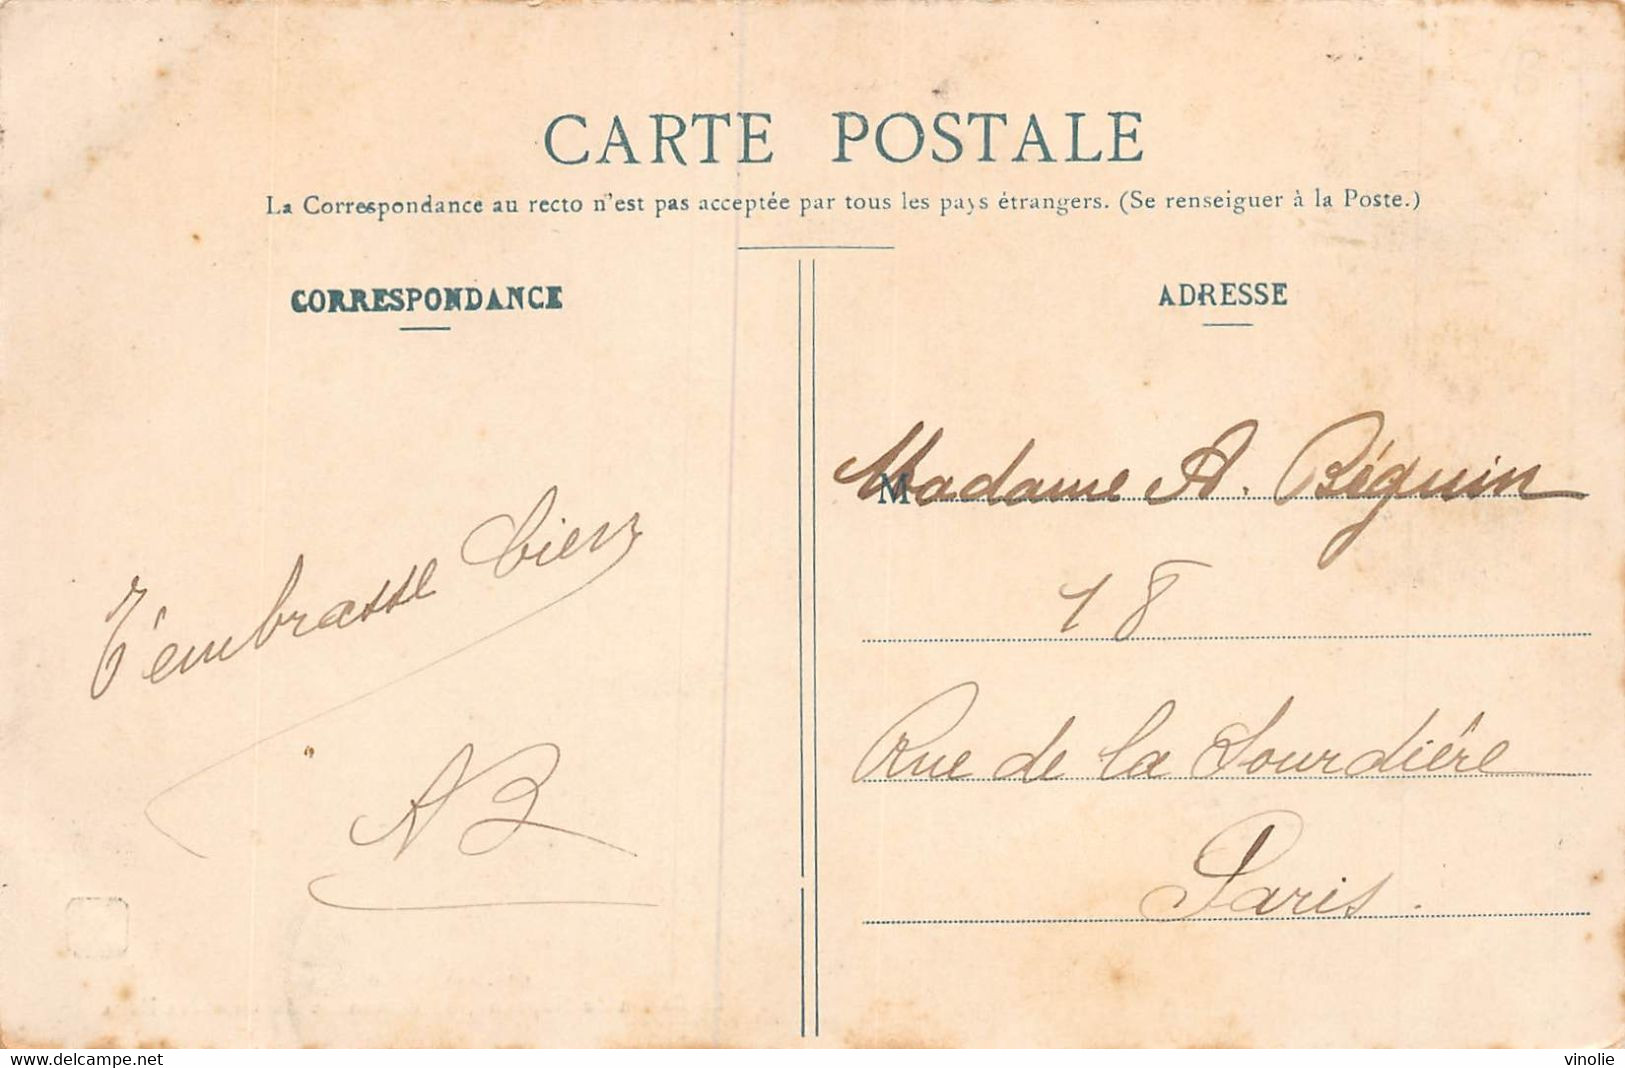 CARTE POSTALE
La Correspondance au recto n'est pas acceptée par tous les pays étrangers. (Se renseigner à la Poste.)
CORRESPONDANCE
T'embrasse bien
AB
ADRESSE
M
Madame A. Béguin
18
Rue de la Sourdière
Paris.
www.delcampe.net
vinolie